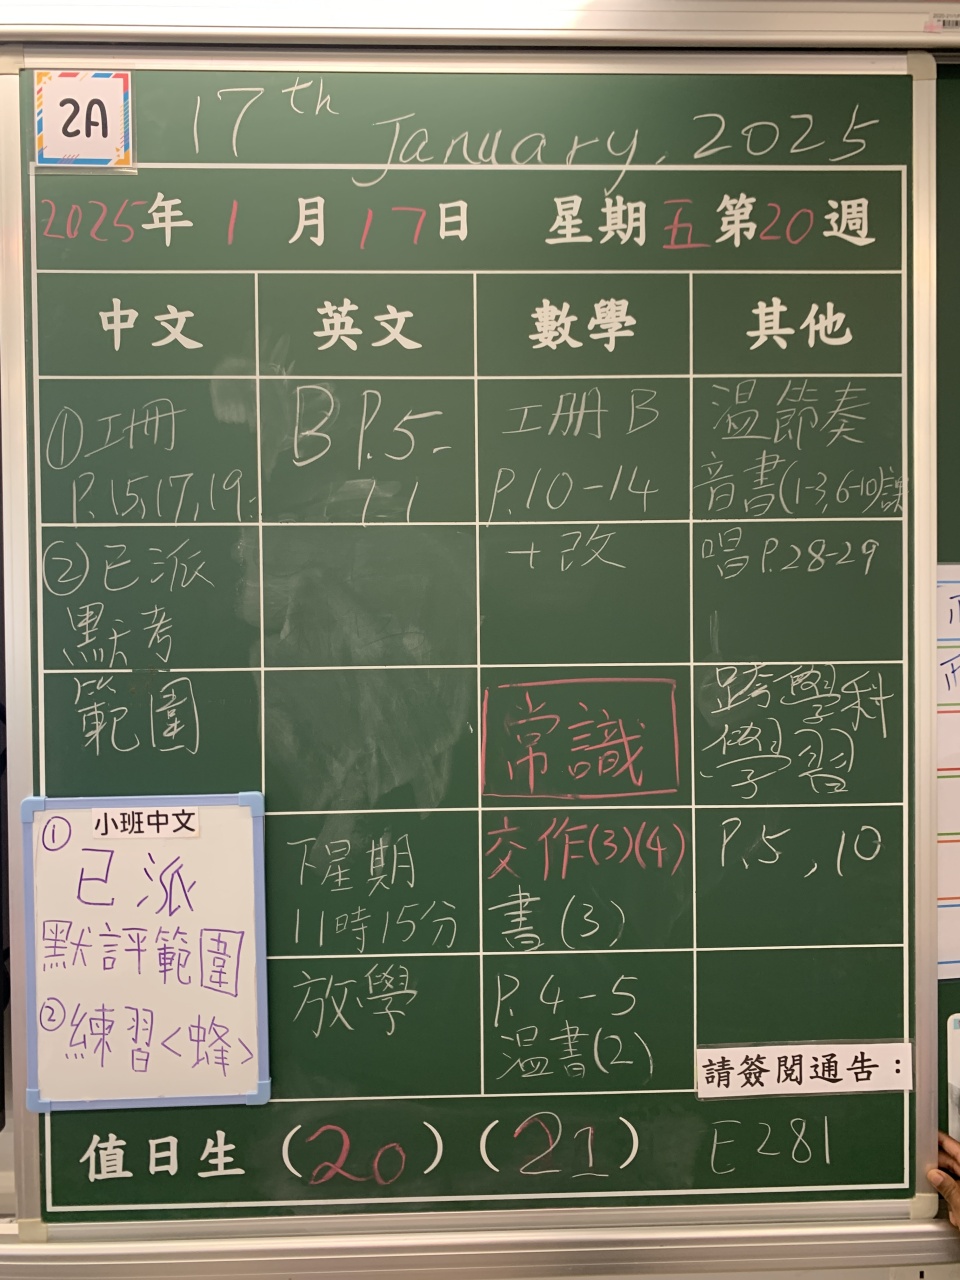 2A
17th January, 2025
2025年1月17日 星期五第20週
中文 英文 數學 其他
①工冊
P.15,17,19.
②已派
默考
範圍
小班中文
①
已派
默評範圍
②練習<蜂>
B P.5-
11
下星期
11時15分
放學
工冊B
P.10-14
+改
常識
交作(3)(4)
書(3)
P.4-5
溫書(2)
溫節奏
音書(1-3,6-10)課
唱P.28-29
跨學科
學習
P.5,10
請簽閱通告：
E281
值日生(20)(21)